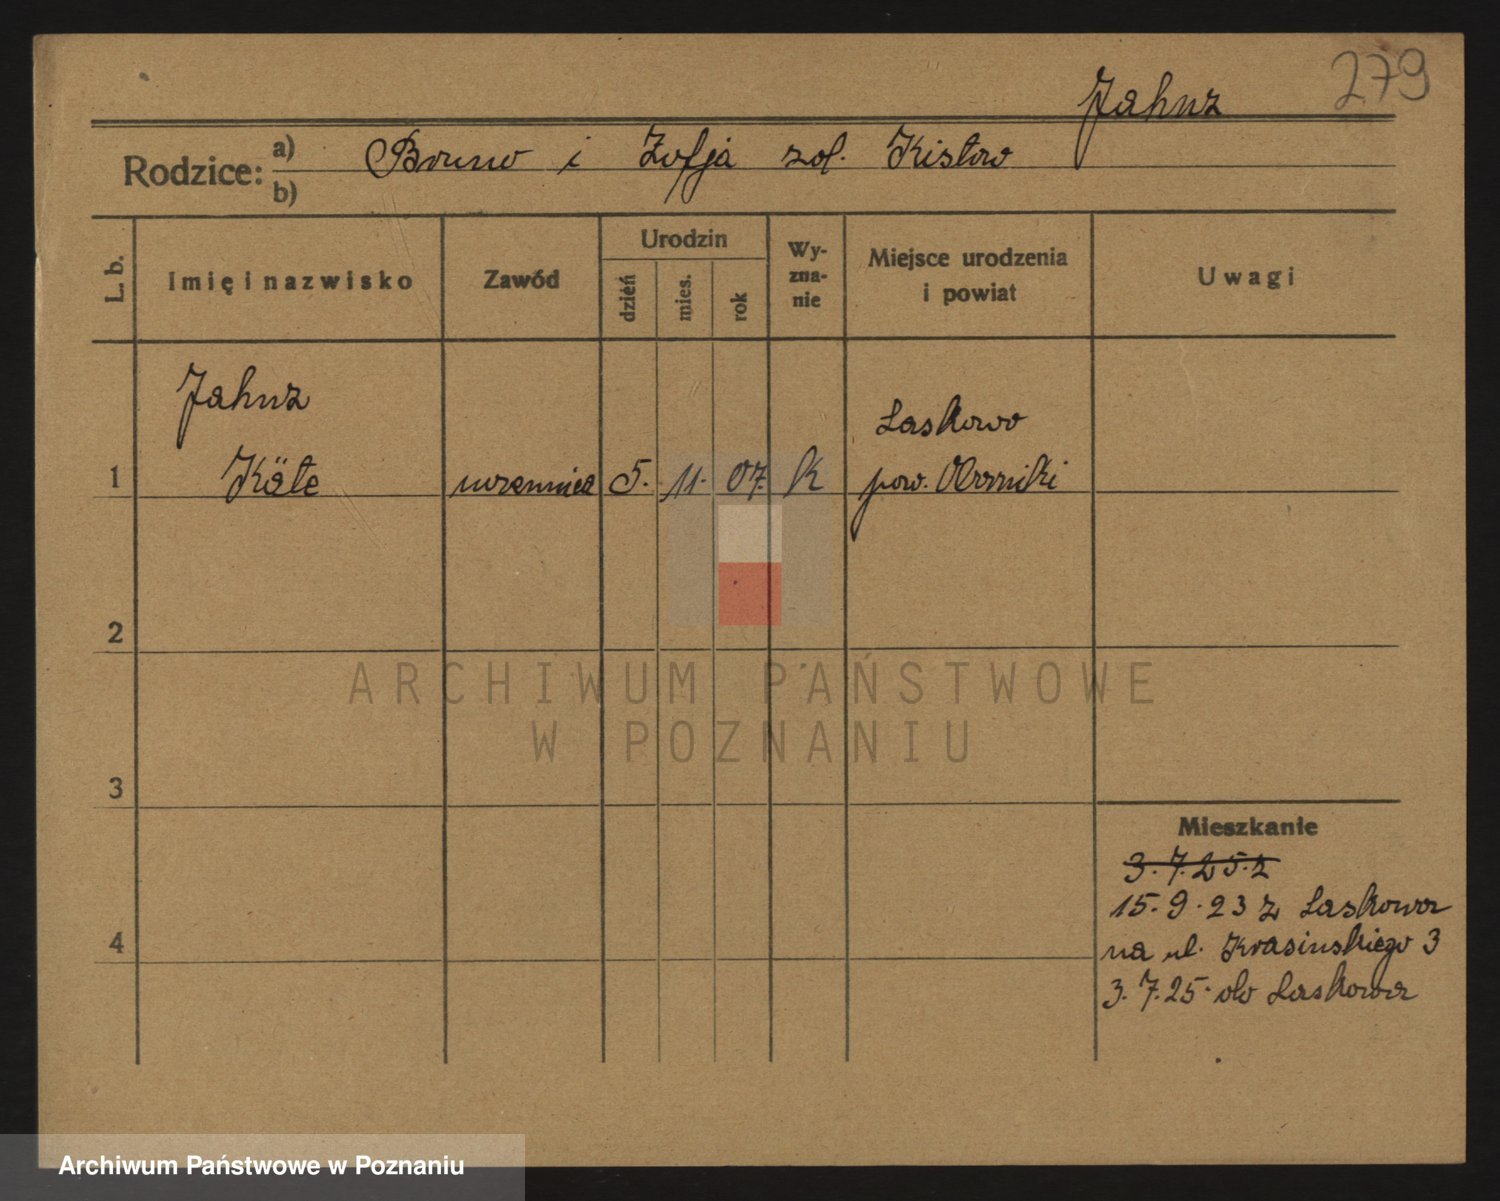 279
Jahnz
Rodzice: a) Bruno i Zofja zd. Kistow
b)
L. b.
Imię i nazwisko
Zawód
Urodzin
dzień
mies.
rok
Wy-
zna-
nie
Miejsce urodzenia
i powiat
Uwagi
Jahnz
Laskowo
1 Käte uczennica 5. 11. 07. k pow. Oborniki
2
ARCHIWUM PAŃSTWOWE
W POZNANIU
3
Mieszkanie
3.7.25.z
15.9.23 z Laskowa
4
na ul. Krasińskiego 3
3.7.25. do Laskowa
Archiwum Państwowe w Poznaniu